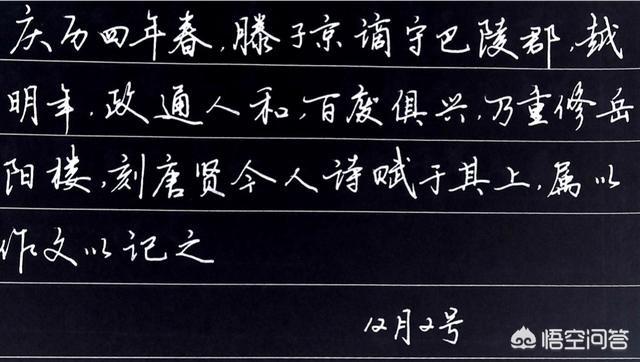 庆历四年春,滕子京谪守巴陵郡,越
明年,政通人和,百废俱兴,乃重修岳
阳楼,刻唐贤今人诗赋于其上,属以
作文以记之
12月2号
悟空问答